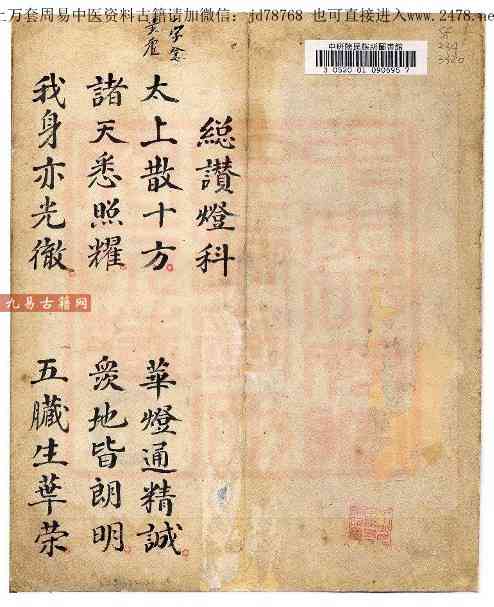 上万套周易中医资料古籍请加微信：jd78768 也可直接进入www.2478.net
中研院民族所圖書館
3 0520 01 090695 7
總讚燈科
太上散十方。 華燈通精誠。
諸天悉照耀。 衆地皆朗明。
我身亦光徹。 五臟生華荣。
九易古籍网